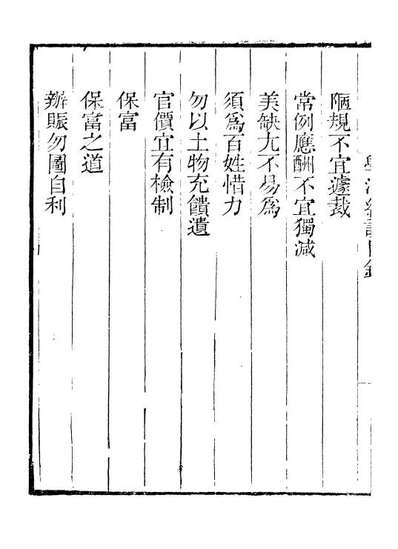 陋規不宜遽裁
常例應酬不宜獨減
美缺尤不易為
須為百姓惜力
勿以土物充饋遺
官價宜有檢制
保富
保富之道
辦賑勿圖自利